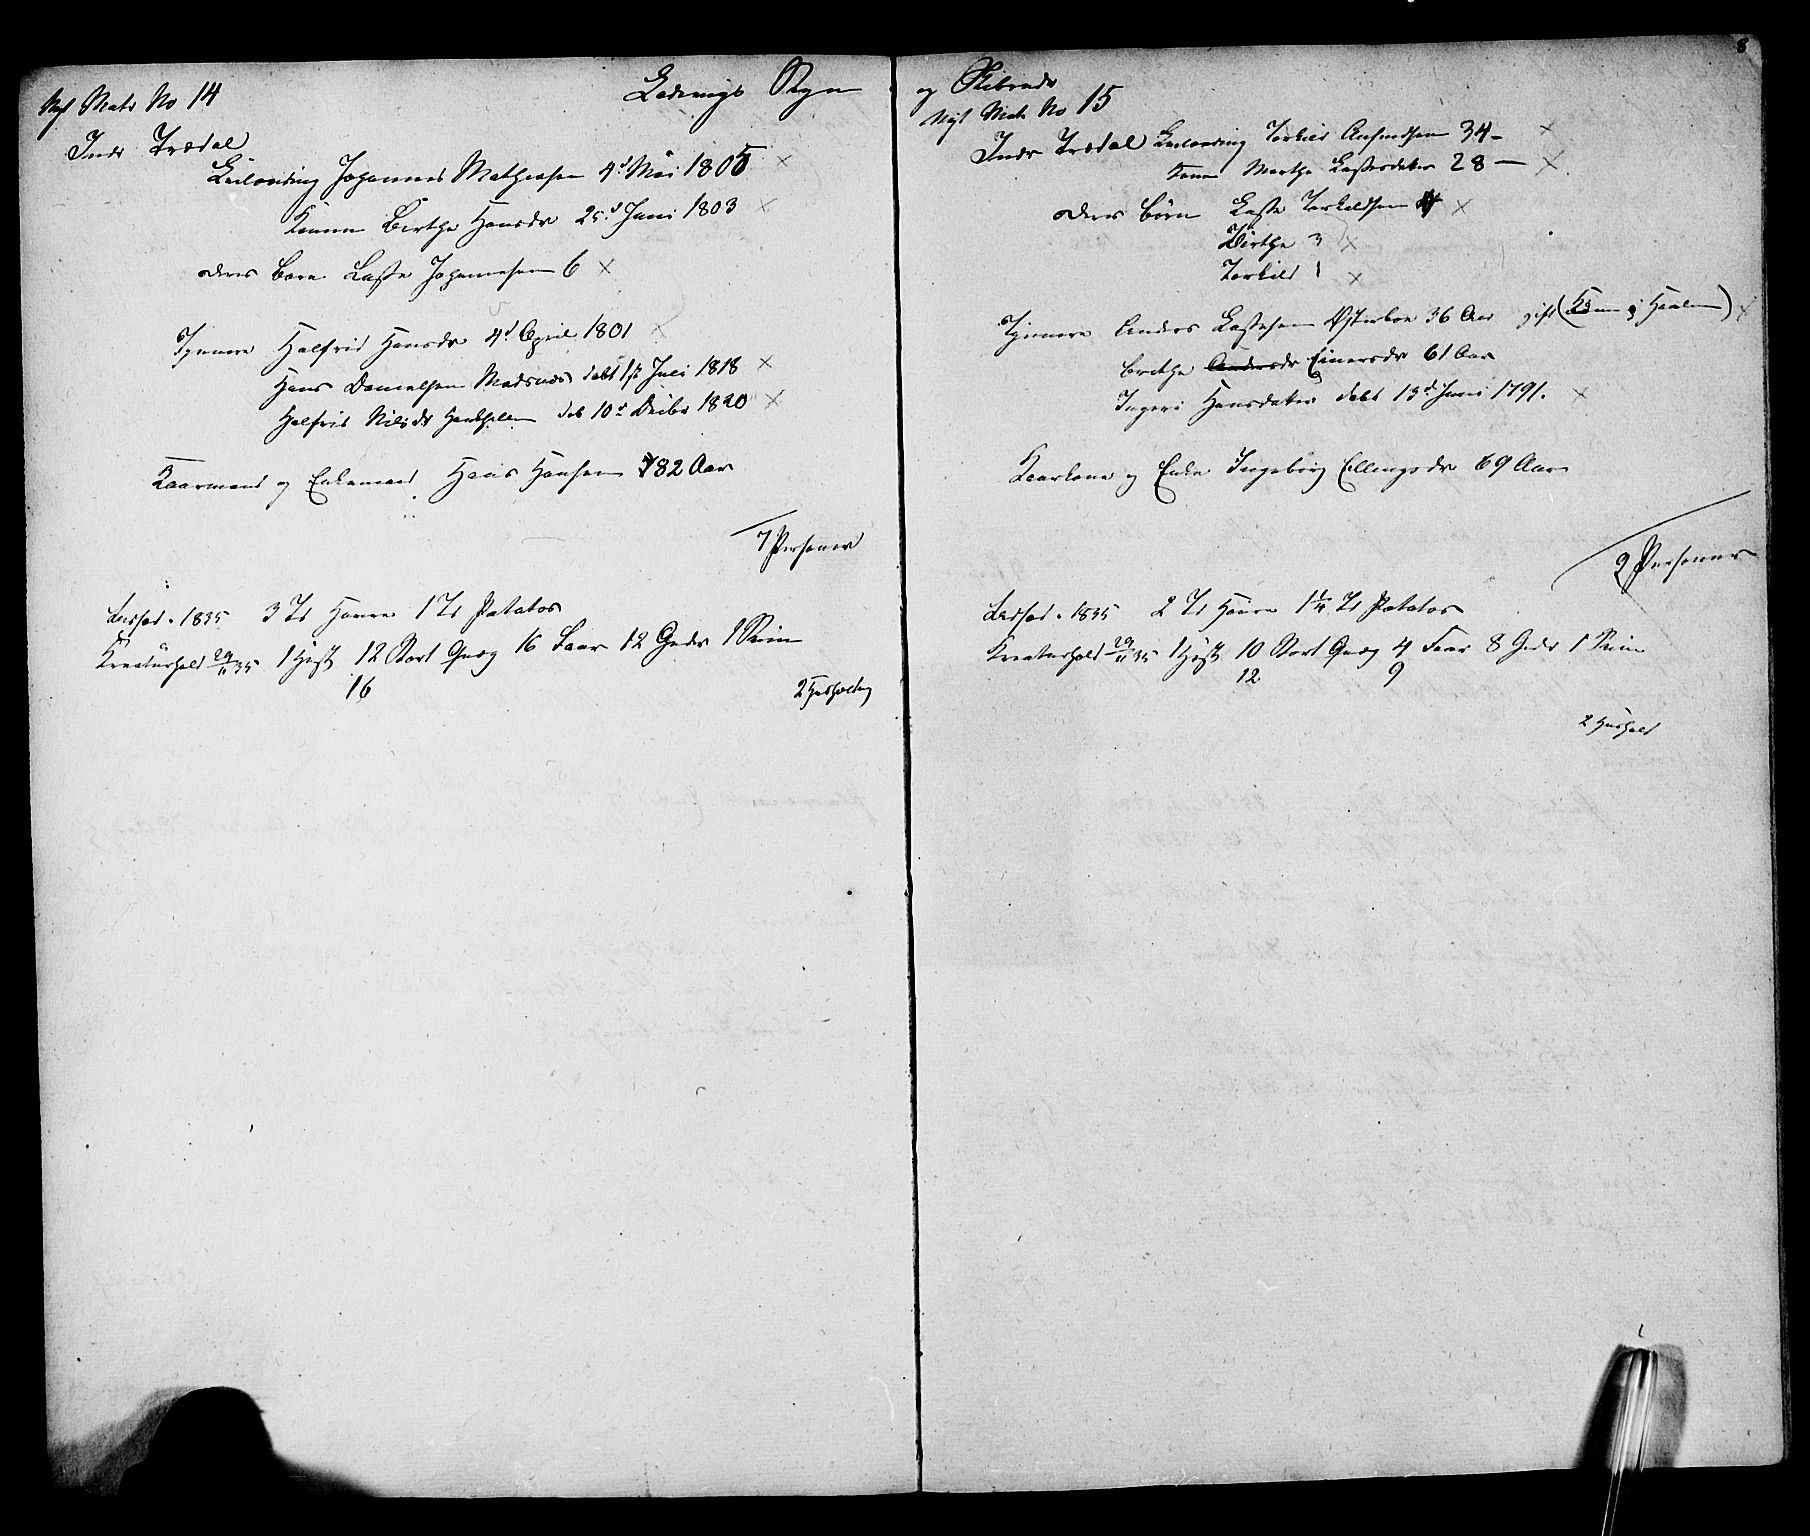 Nyt Matr No 14
Ladvigs Sogn
Indr Trædal
Leilænding Johannes Mathiasen 4d Mai 1805 ×
Konen Birthe Hansdr 25d Juni 1803 ×
Deres Barn Lasse Johannesen 6 ×
Tjenere Halfrid Hansdr 4d April 1801 ×
Hans Danielsen døbt 1st Juli 1818 ×
Halfrid Nilsdr døb 10d Decbr 1820 ×
Kaarmand og Enkemand Hans Hansen 82 Aar
7 Personer
Udsæd 1835 3 Td Havre 1 Td Patatos
Kreaturhold 29/11 35 1 Hest 12 Stort Qvæg 16 Faar 12 Geder 1 Sviin
16
2 Husholdng
8
og Skibredr
Nyt Matr No 15
Indr Trædal Leilænding Torkild Aamundsen 34 – ×
Konen Marthe Lassesdatter 28 – ×
Deres Børn Lasse Torkeldsen ×
Birthe 3 ×
Torkild 1 ×
Tjenere Anders Lassesen Østerboe 36 Aar gift (Konen i ) ×
Birthe Andersdr Einersdr 61 Aar
Ingeri Hansdatter døbt 13d Juni 1791. ×
Kaarkone og Enke Ingeborg Ellingsdr 69 Aar
9 Personer
Udsæd 1835 2 Td Havre 1 1/4 Td Patatos
Kreaturhold 29/11 35 1 Hest 10 Stort Qvæg 4 Faar 8 Geder 1 Sviin
12 9
2 Hushold